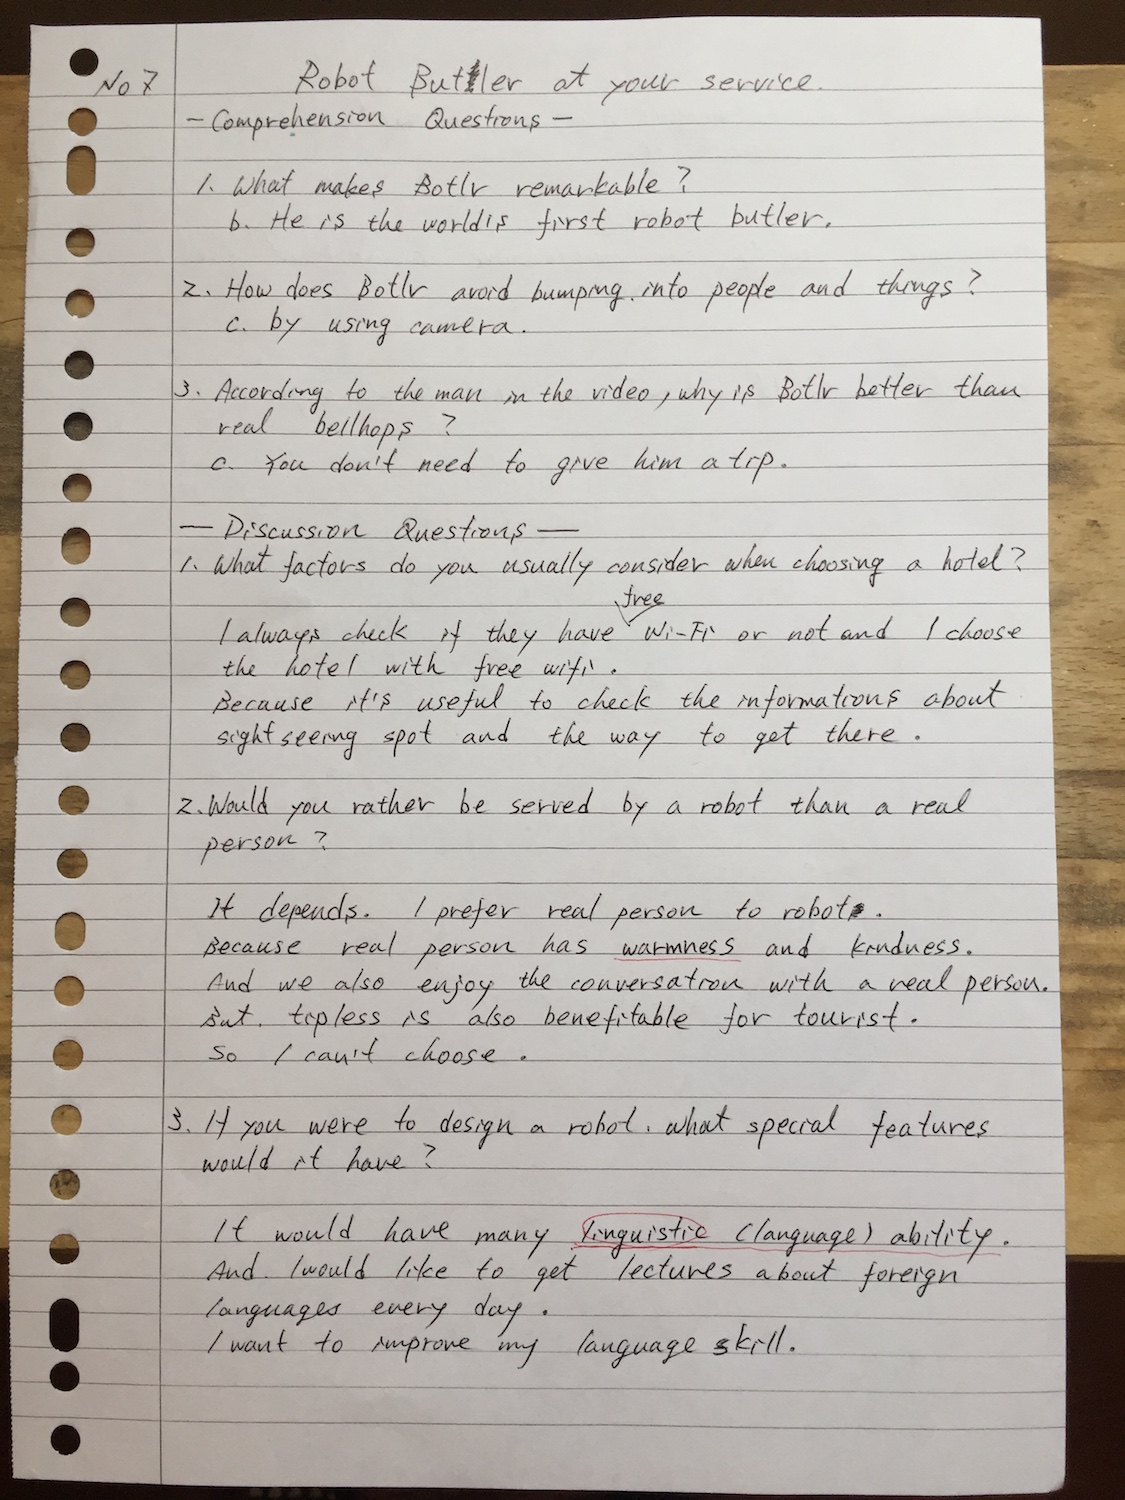 No 7
Robot Butler at your service.
- Comprehension Questions -
1. What makes Botlr remarkable?
b. He is the world's first robot butler.
2. How does Botlr avoid bumping into people and things?
c. by using camera.
3. According to the man in the video, why is Botlr better than
real bellhops?
c. You don't need to give him a tip.
— Discussion Questions —
1. What factors do you usually consider when choosing a hotel?
free
I always check if they have Wi-Fi or not and I choose
the hotel with free wifi.
Because it's useful to check the informations about
sightseeing spot and the way to get there.
2. Would you rather be served by a robot than a real
person?
It depends. I prefer real person to robot.
Because real person has warmness and kindness.
And we also enjoy the conversation with a real person.
But. tipless is also benefitable for tourist.
So I can't choose.
3. If you were to design a robot. what special features
would it have?
It would have many linguistic (language) ability.
And. I would like to get lectures about foreign
languages every day.
I want to improve my language skill.